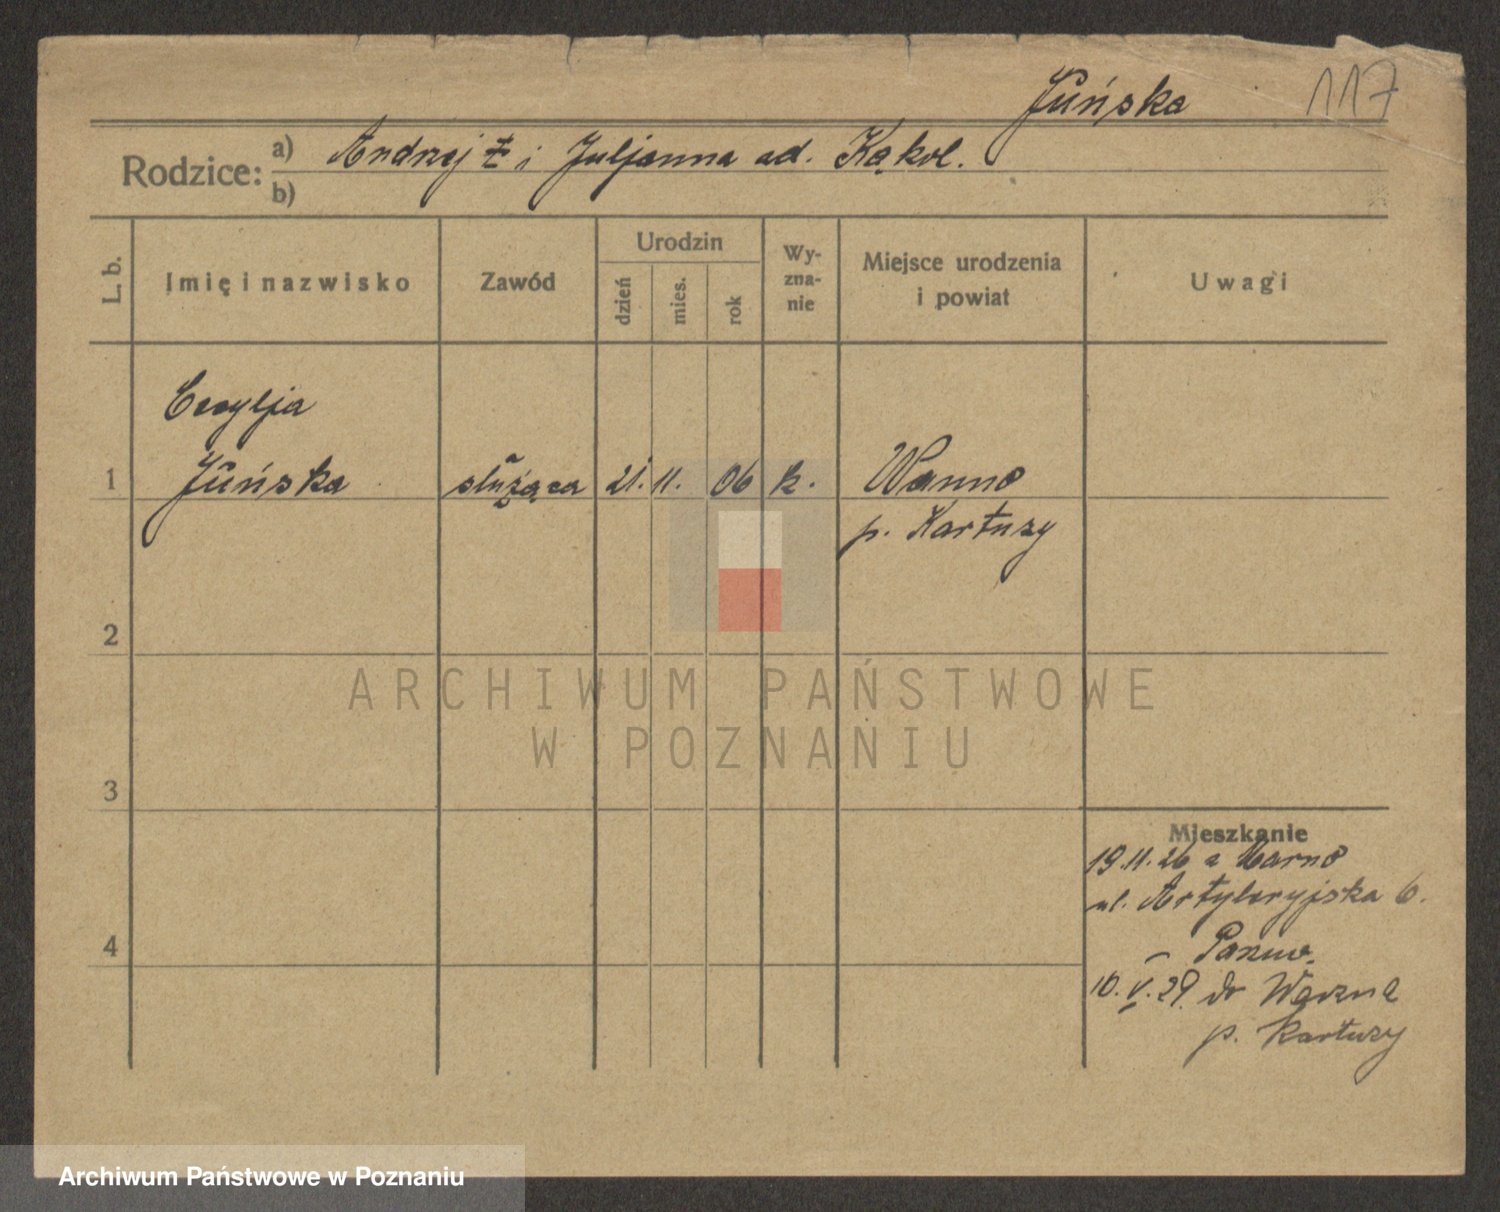 Juńska
117
Rodzice: a) Andrzej i Juljanna od. Kąkol.
b)
L. b.
Imię i nazwisko
Zawód
Urodzin
dzień
mies.
rok
Wy-
zna-
nie
Miejsce urodzenia
i powiat
Uwagi
Cecylja
1 Juńska służąca 21. 11. 06 k. Warno
p. Kartuzy
2
ARCHIWUM PAŃSTWOWE
W POZNANIU
3
Mieszkanie
19.11.26 z Warno
ul. Artyleryjska 6.
4
10.V.29. do
p. Kartuzy
Archiwum Państwowe w Poznaniu